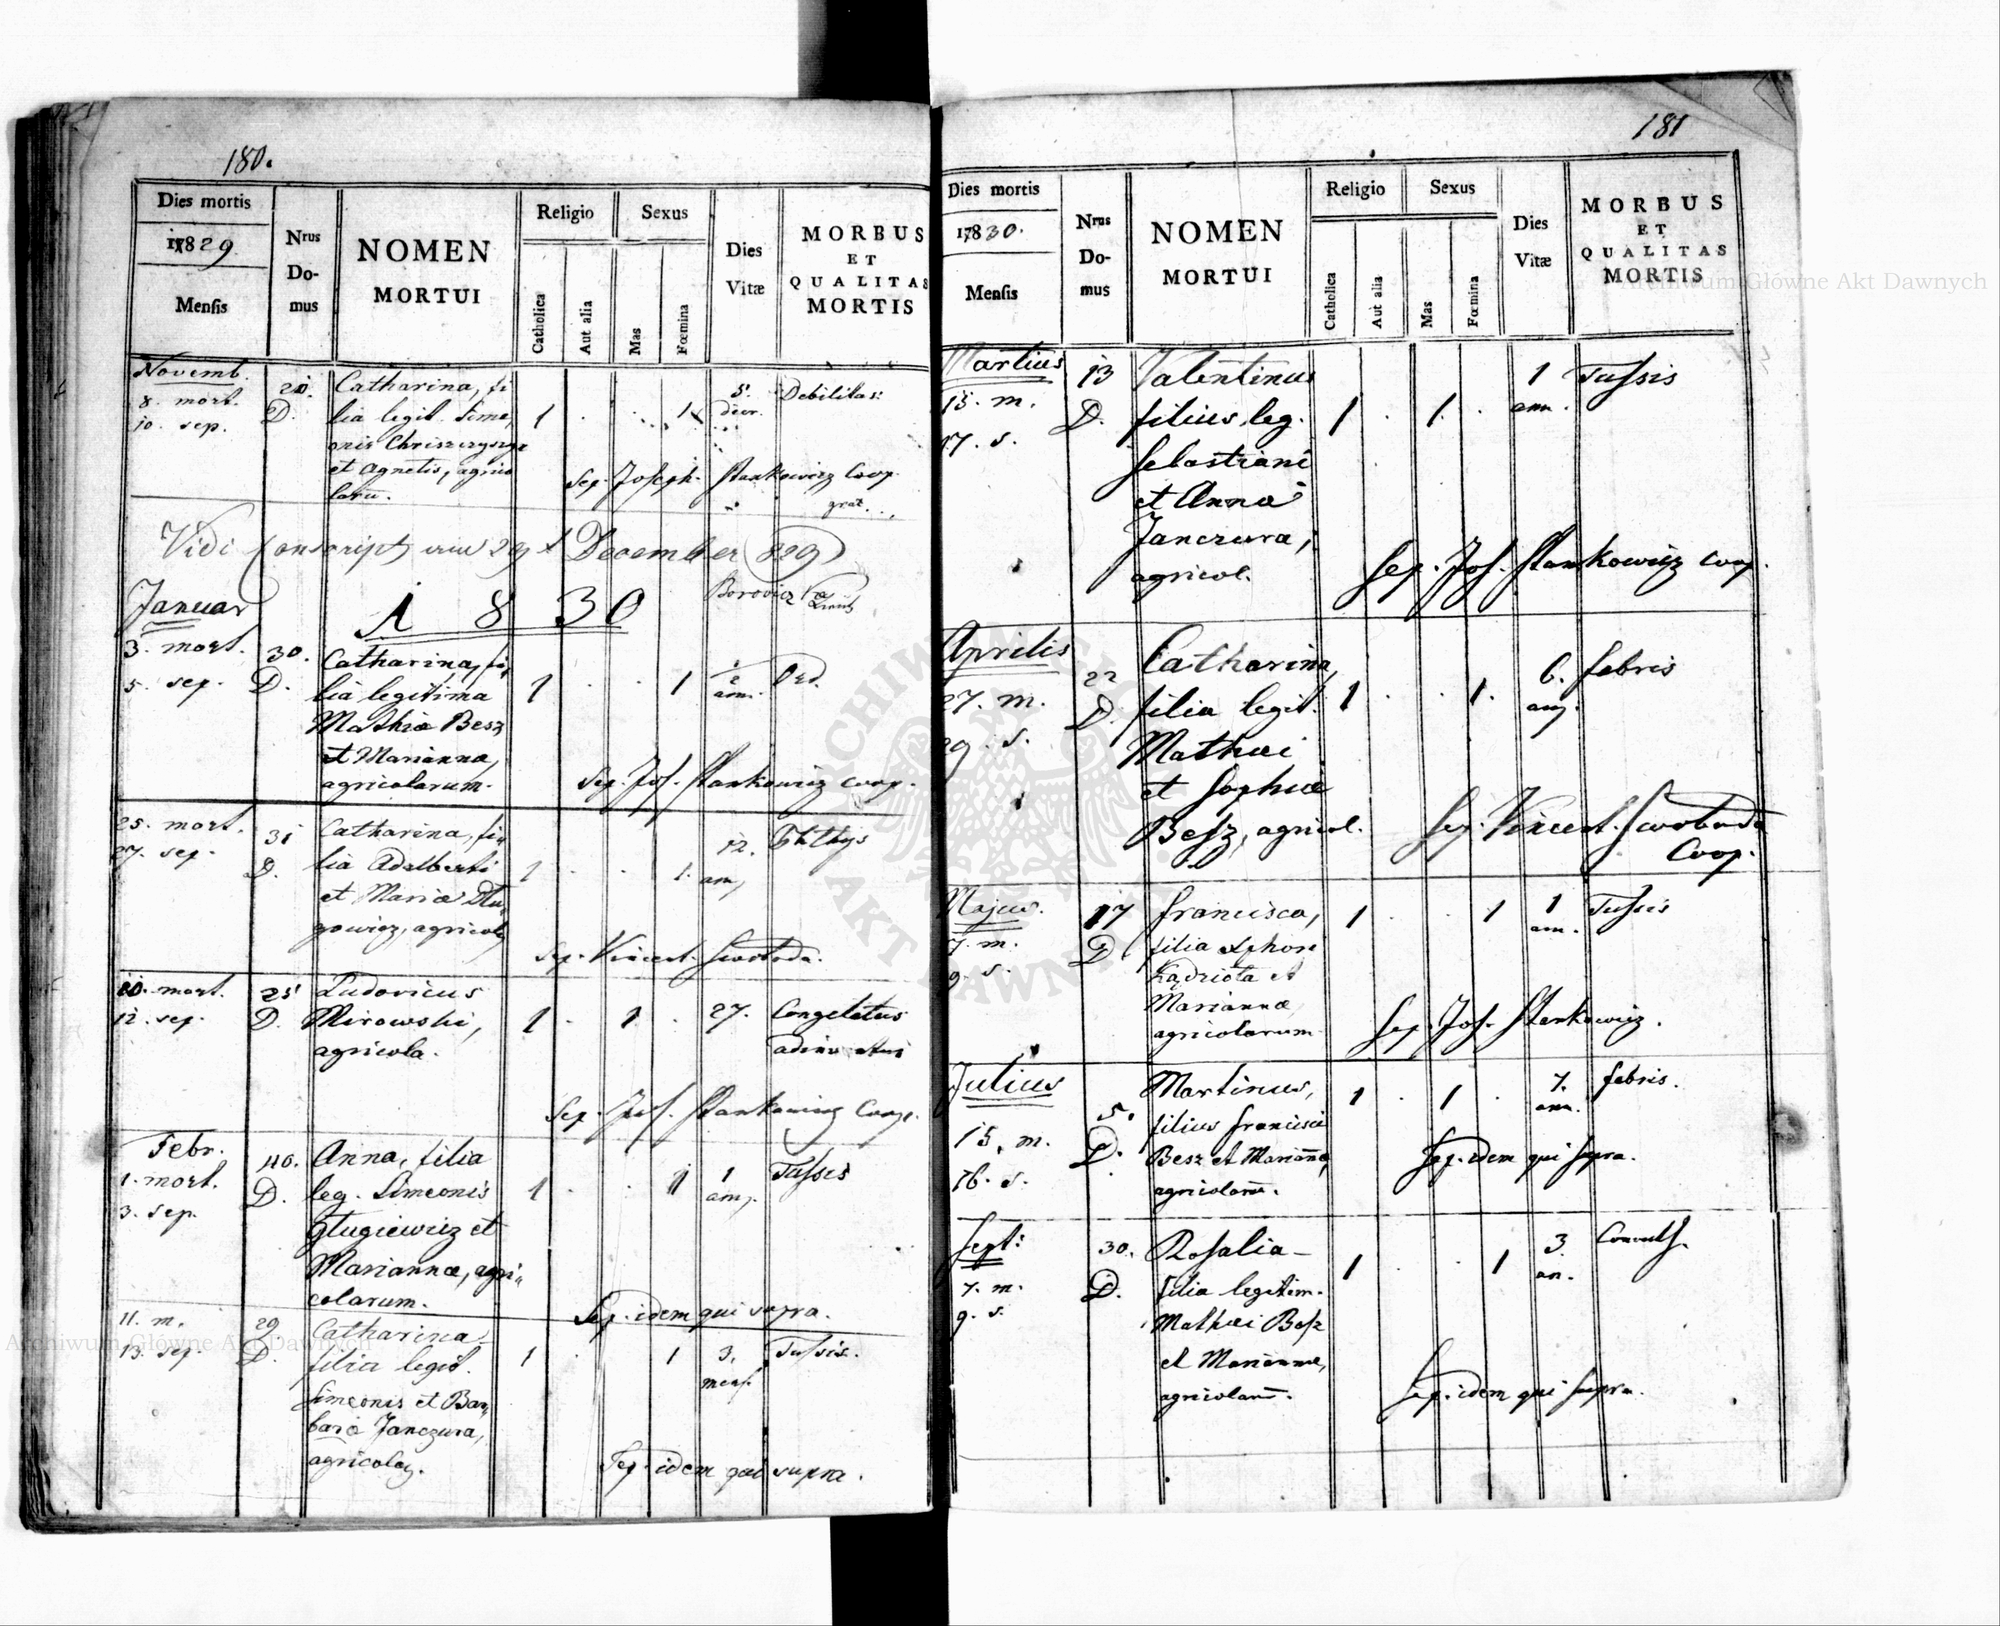 180.
Dies mortis
1829
Mensis
Nrus
Do-
mus
NOMEN
MORTUI
Religio
Catholica
Aut alia
Sexus
Mas
Fœmina
Dies
Vitæ
MORBUS
ET
QUALITAS
MORTIS
Novemb.
8. mort.
10. sep.
D.
Catharina, fi
lia legit. Sime
onis
et Agnetis, agrico
laru.
1 . . 1
5.
Debilitas
Sep. Joseph. Stankowicz Coop.
Vidi December 829
Januar
1830
3. mort.
5. sep.
30.
D.
Catharina, fi,
lia legitima
Mathiæ Besz
et Mariannæ,
agricolarum.
1 . . 1
½
ann.
Ord.
Sep. Jos. Stankowicz coop.
25. mort.
27. sep.
31
D.
Catharina, fi,,
lia Adalberti
et Mariæ Dłu,,
gowicz, agricol
1 . . 1.
12.
ann,
Phthys
Sep. Vincent. Swoboda.
10. mort.
12. sep.
25
D.
Ludovicus
Mirowski,
agricola.
1 . 1 .
27.
Congelatus
Sep. Jos. Stankowicz Coop.
Febr.
1. mort.
3. sep.
40.
D.
Anna, filia
leg. Simeonis
Długiewicz et
Mariannæ, agri,,
colarum.
1 . . 1
1
ann.
Tussis
Sep. idem qui supra.
11. m.
13. sep.
29
D.
Catharina
filia legit.
Simeonis et Bar,,
baræ Janczura,
agricolar.
1 . 1
3.
mens.
Tussis.
Sep. idem qui supra.
181
Dies mortis
1830.
Mensis
Nrus
Do-
mus
NOMEN
MORTUI
Religio
Catholica
Aut alia
Sexus
Mas
Fœmina
Dies
Vitæ
MORBUS
ET
QUALITAS
MORTIS
Martius
15. m.
17. s.
13
D.
Valentinus
filius leg.
Sebastiani
et Annæ
Janczura,
agricol.
1 . 1 .
1
ann.
Tussis
Sep. Jos. Stankowicz coop.
Aprilis
27. m.
29. s.
22
D.
Catharina,
filia legit.
Mathæi
et Sophiæ
Besz, agricol.
1 . . 1.
6.
ann.
febris
Sep. Vincent. Swoboda
Coop.
Majus.
7. m.
9. s.
17
D
Francisca,
filia
et
Mariannæ,
agricolarum
1 . . 1
1
ann.
Tussis
Sep. Jos. Stankowicz.
Julius
15. m.
16. s.
5.
D.
Martinus,
filius Francisci
Besz et Mariannæ,
agricolaru.
1 . 1 .
7.
ann.
febris.
Sep. idem qui supra.
Sept:
7. m.
9. s.
30.
D.
Rosalia
filia legitim.
Mathæi Besz
et Mariannæ,
agricolaru.
1 . . 1
3.
an.
Convuls.
Sep. idem qui supra.
Archiwum Główne Akt Dawnych
Archiwum Główne Akt Dawnych
ARCHIWUM GŁÓWNE
AKT DAWNYCH